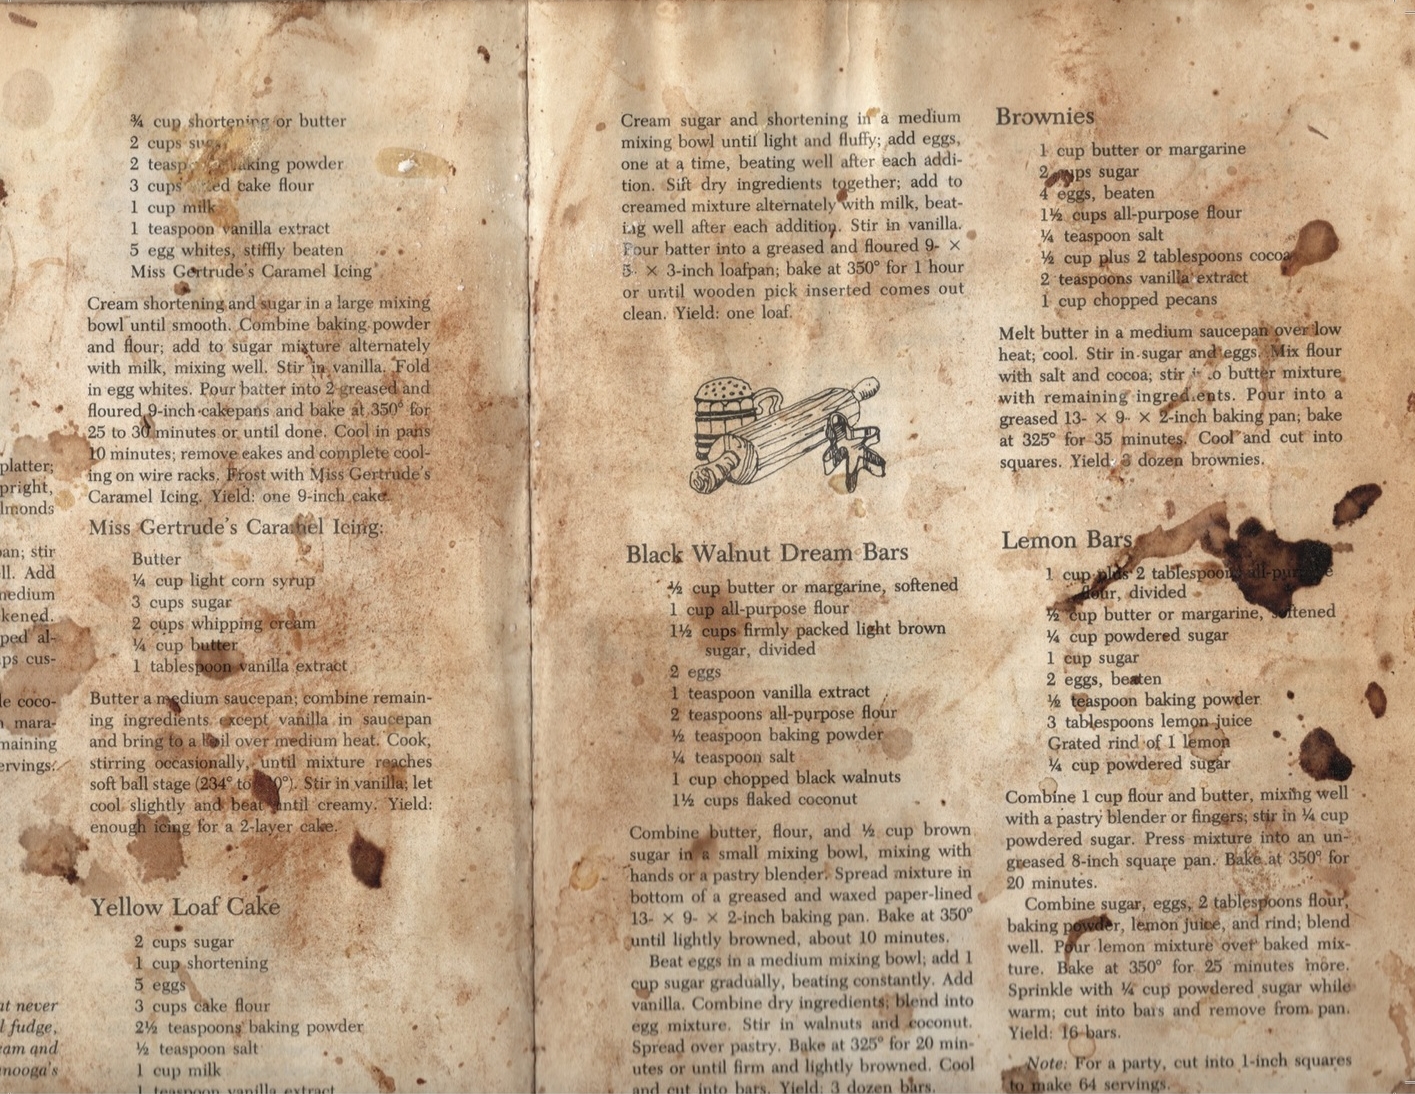 platter;
pright,
lmonds
an; stir
ll. Add
nedium
kened.
ped al-
ps cus-
le coco-
mara-
maining
ervings.
at never
l fudge,
am and
nooga's
¾ cup shortening or butter
2 cups
2 baking powder
3 cups cake flour
1 cup milk
1 teaspoon vanilla extract
5 egg whites, stiffly beaten
Miss Gertrude's Caramel Icing
Cream shortening and sugar in a large mixing
bowl until smooth. Combine baking powder
and flour; add to sugar mixture alternately
with milk, mixing well. Stir in vanilla. Fold
in egg whites. Pour batter into 2 greased and
floured 9-inch cakepans and bake at 350° for
25 to 30 minutes or until done. Cool in pans
10 minutes; remove cakes and complete cool-
ing on wire racks. Frost with Miss Gertrude's
Caramel Icing. Yield: one 9-inch cake.
Miss Gertrude's Caramel Icing:
Butter
¼ cup light corn syrup
3 cups sugar
2 cups whipping cream
¼ cup butter
1 tablespoon vanilla extract
Butter a medium saucepan; combine remain-
ing ingredients except vanilla in saucepan
and bring to a boil over medium heat. Cook,
stirring occasionally, until mixture reaches
soft ball stage (234° to Stir in vanilla; let
cool slightly and beat until creamy. Yield:
enough icing for a 2-layer cake.
Yellow Loaf Cake
2 cups sugar
1 cup shortening
5 eggs
3 cups cake flour
2½ teaspoons baking powder
½ teaspoon salt
1 cup milk
1 teaspoon vanilla extract
Cream sugar and shortening in a medium
mixing bowl until light and fluffy; add eggs,
one at a time, beating well after each addi-
tion. Sift dry ingredients together; add to
creamed mixture alternately with milk, beat-
ing well after each addition. Stir in vanilla.
Pour batter into a greased and floured 9- ×
5- × 3-inch loafpan; bake at 350° for 1 hour
or until wooden pick inserted comes out
clean. Yield: one loaf.
Black Walnut Dream Bars
½ cup butter or margarine, softened
1 cup all-purpose flour
1½ cups firmly packed light brown
sugar, divided
2 eggs
1 teaspoon vanilla extract
2 teaspoons all-purpose flour
½ teaspoon baking powder
¼ teaspoon salt
1 cup chopped black walnuts
1½ cups flaked coconut
Combine butter, flour, and ½ cup brown
sugar in a small mixing bowl, mixing with
hands or a pastry blender. Spread mixture in
bottom of a greased and waxed paper-lined
13- × 9- × 2-inch baking pan. Bake at 350°
until lightly browned, about 10 minutes.
Beat eggs in a medium mixing bowl; add 1
cup sugar gradually, beating constantly. Add
vanilla. Combine dry ingredients; blend into
egg mixture. Stir in walnuts and coconut.
Spread over pastry. Bake at 325° for 20 min-
utes or until firm and lightly browned. Cool
and cut into bars. Yield: 3 dozen bars.
Brownies
1 cup butter or margarine
2 cups sugar
4 eggs, beaten
1½ cups all-purpose flour
¼ teaspoon salt
½ cup plus 2 tablespoons cocoa
2 teaspoons vanilla extract
1 cup chopped pecans
Melt butter in a medium saucepan over low
heat; cool. Stir in sugar and eggs. Mix flour
with salt and cocoa; stir into butter mixture
with remaining ingredients. Pour into a
greased 13- × 9- × 2-inch baking pan; bake
at 325° for 35 minutes. Cool and cut into
squares. Yield: 3 dozen brownies.
Lemon Bars
1 cup plus 2 tablespoons all-purpose
flour, divided
½ cup butter or margarine, softened
¼ cup powdered sugar
1 cup sugar
2 eggs, beaten
½ teaspoon baking powder
3 tablespoons lemon juice
Grated rind of 1 lemon
¼ cup powdered sugar
Combine 1 cup flour and butter, mixing well
with a pastry blender or fingers; stir in ¼ cup
powdered sugar. Press mixture into an un-
greased 8-inch square pan. Bake at 350° for
20 minutes.
Combine sugar, eggs, 2 tablespoons flour,
baking powder, lemon juice, and rind; blend
well. Pour lemon mixture over baked mix-
ture. Bake at 350° for 25 minutes more.
Sprinkle with ¼ cup powdered sugar while
warm; cut into bars and remove from pan.
Yield: 16 bars.
Note: For a party, cut into 1-inch squares
to make 64 servings.